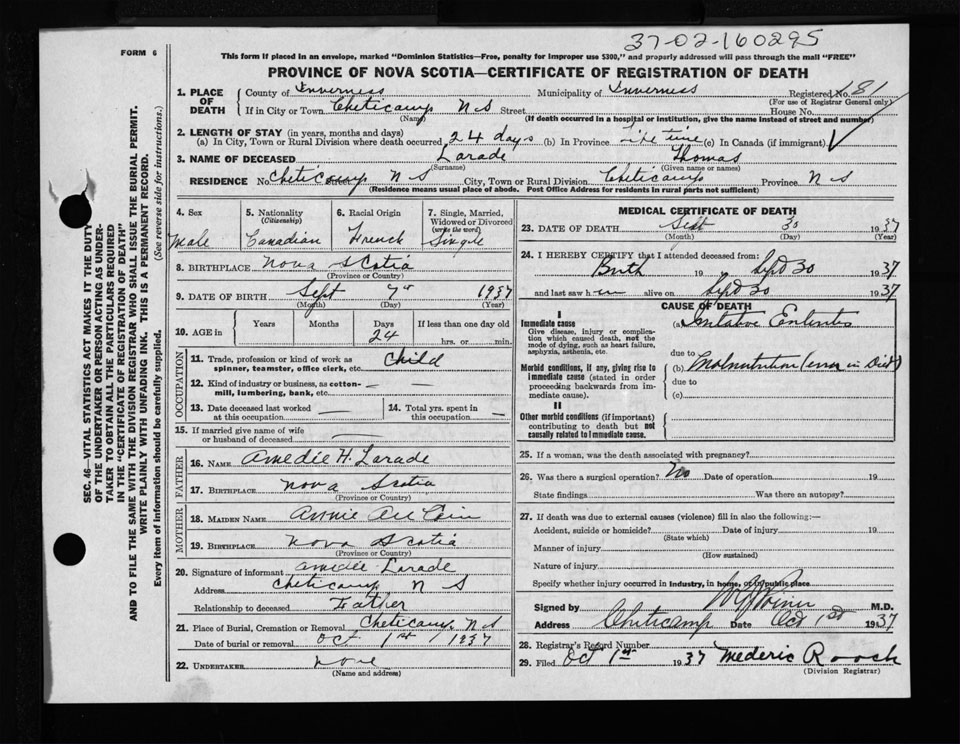 37-02-160295
FORM 6
This form if placed in an envelope, marked "Dominion Statistics—Free, penalty for improper use $300," and properly addressed will pass through the mail "FREE"
PROVINCE OF NOVA SCOTIA—CERTIFICATE OF REGISTRATION OF DEATH
1. PLACE OF DEATH County of Inverness Municipality of Inverness Registered No. 181
(For use of Registrar General only)
If in City or Town Cheticamp N S Street House No.
(Name) (If death occurred in a hospital or institution, give the name instead of street and number)
2. LENGTH OF STAY (in years, months and days)
(a) In City, Town or Rural Division where death occurred 24 days (b) In Province Life time (c) In Canada (if immigrant)
3. NAME OF DECEASED Larade Thomas
(Surname) (Given name or names)
RESIDENCE No. Cheticamp N S City, Town or Rural Division Cheticamp Province N S
(Residence means usual place of abode. Post Office Address for residents in rural parts not sufficient)
4. Sex 5. Nationality 6. Racial Origin 7. Single, Married,
(Citizenship) Widowed or Divorced
(write the word)
Male Canadian French Single
8. BIRTHPLACE Nova Scotia
(Province or Country)
9. DATE OF BIRTH Sept 7th 1937
(Month) (Day) (Year)
10. AGE in Years Months Days If less than one day old
24 hrs. or min.
OCCUPATION
11. Trade, profession or kind of work as Child
spinner, teamster, office clerk, etc.
12. Kind of industry or business, as cotton-
mill, lumbering, bank, etc.
13. Date deceased last worked 14. Total yrs. spent in
at this occupation. this occupation.
15. If married give name of wife
or husband of deceased
FATHER
16. NAME Amedie H. Larade
17. BIRTHPLACE Nova Scotia
(Province or Country)
MOTHER
18. MAIDEN NAME Annie Au Coin
19. BIRTHPLACE Nova Scotia
(Province or Country)
20. Signature of informant Amedie Larade
Address Cheticamp N S
Relationship to deceased Father
21. Place of Burial, Cremation or Removal Cheticamp N S
Date of burial or removal Oct 1st 1937
22. UNDERTAKER None
(Name and address)
MEDICAL CERTIFICATE OF DEATH
23. DATE OF DEATH Sept 30 1937
(Month) (Day) (Year)
24. I HEREBY CERTIFY that I attended deceased from:
Birth 19 Sept 30 1937
and last saw h im alive on Sept 30 1937
CAUSE OF DEATH
I
Immediate cause (a)
Give disease, injury or complica-
tion which caused death, not the
mode of dying, such as heart failure,
asphyxia, asthenia, etc.
due to
Morbid conditions, if any, giving rise to (b) Malnutrition (error in Diet)
immediate cause (stated in order due to
proceeding backwards from im- (c)
mediate cause).
II
Other morbid conditions (if important)
contributing to death but not
causally related to immediate cause.
25. If a woman, was the death associated with pregnancy?
26. Was there a surgical operation? No Date of operation 19
State findings Was there an autopsy?
27. If death was due to external causes (violence) fill in also the following:—
Accident, suicide or homicide? Date of injury 19
(State which)
Manner of injury
(How sustained)
Nature of injury
Specify whether injury occurred in industry, in home, or in public place
Signed by M.D.
Address Cheticamp Date Oct 1st 1937
28. Registrar's Record Number
29. Filed Oct 1st 1937 Mederic Roach
(Division Registrar)
SEC. 46—VITAL STATISTICS ACT MAKES IT THE DUTY
OF THE UNDERTAKER OR PERSON ACTING AS UNDER-
TAKER TO OBTAIN ALL THE PARTICULARS REQUIRED
IN THE "CERTIFICATE OF REGISTRATION OF DEATH"
AND TO FILE THE SAME WITH THE DIVISION REGISTRAR WHO SHALL ISSUE THE BURIAL PERMIT.
WRITE PLAINLY WITH UNFADING INK. THIS IS A PERMANENT RECORD.
Every item of information should be carefully supplied. (See reverse side for instructions.)